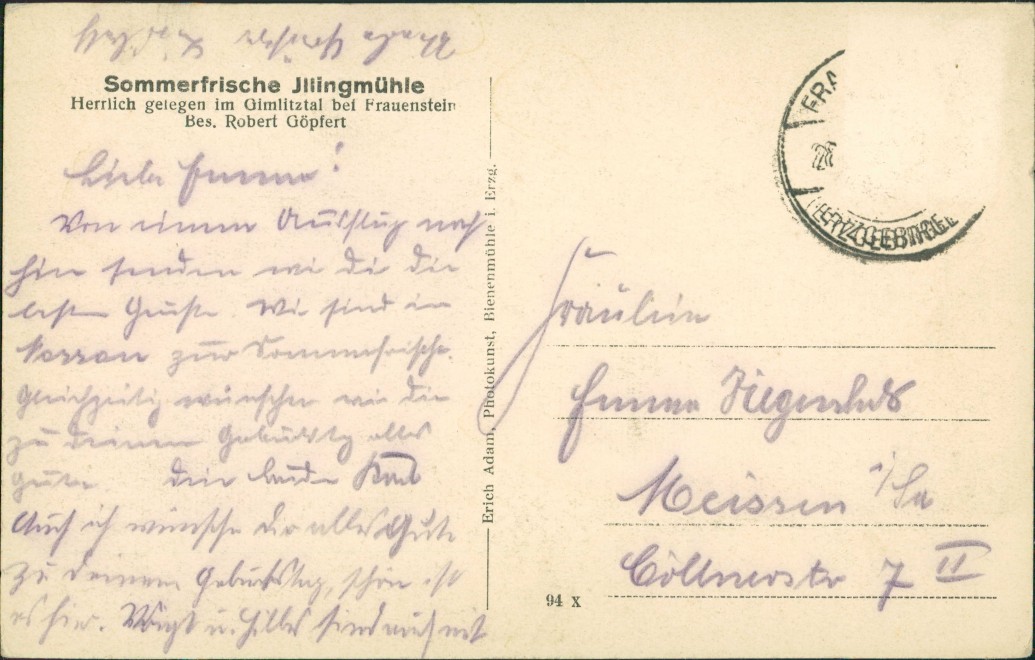 Sommerfrische Jllingmühle
Herrlich gelegen im Gimlitztal bei Frauenstein
Bes. Robert Göpfert
Liebe Emma!
Von einem Ausflug nach
hier senden wir dir die
besten Grüße. Wir sind in
Nossen zur Sommerfrische.
Gleichzeitig wünschen wir dir
zu deinem Geburtstg alles
Gute. dein
Auch ich wünsche dir alles Gute
zu deinem Geburtstag, schön ist
es hier. Voigt u. sind auch mit
Erich Adam, Photokunst, Bienenmühle i. Erzg.
FRA
(ERZGEBIRGE)
Fräulein
Emma
Meissen i/Sa
Cöllnerstr 7 II
94 X